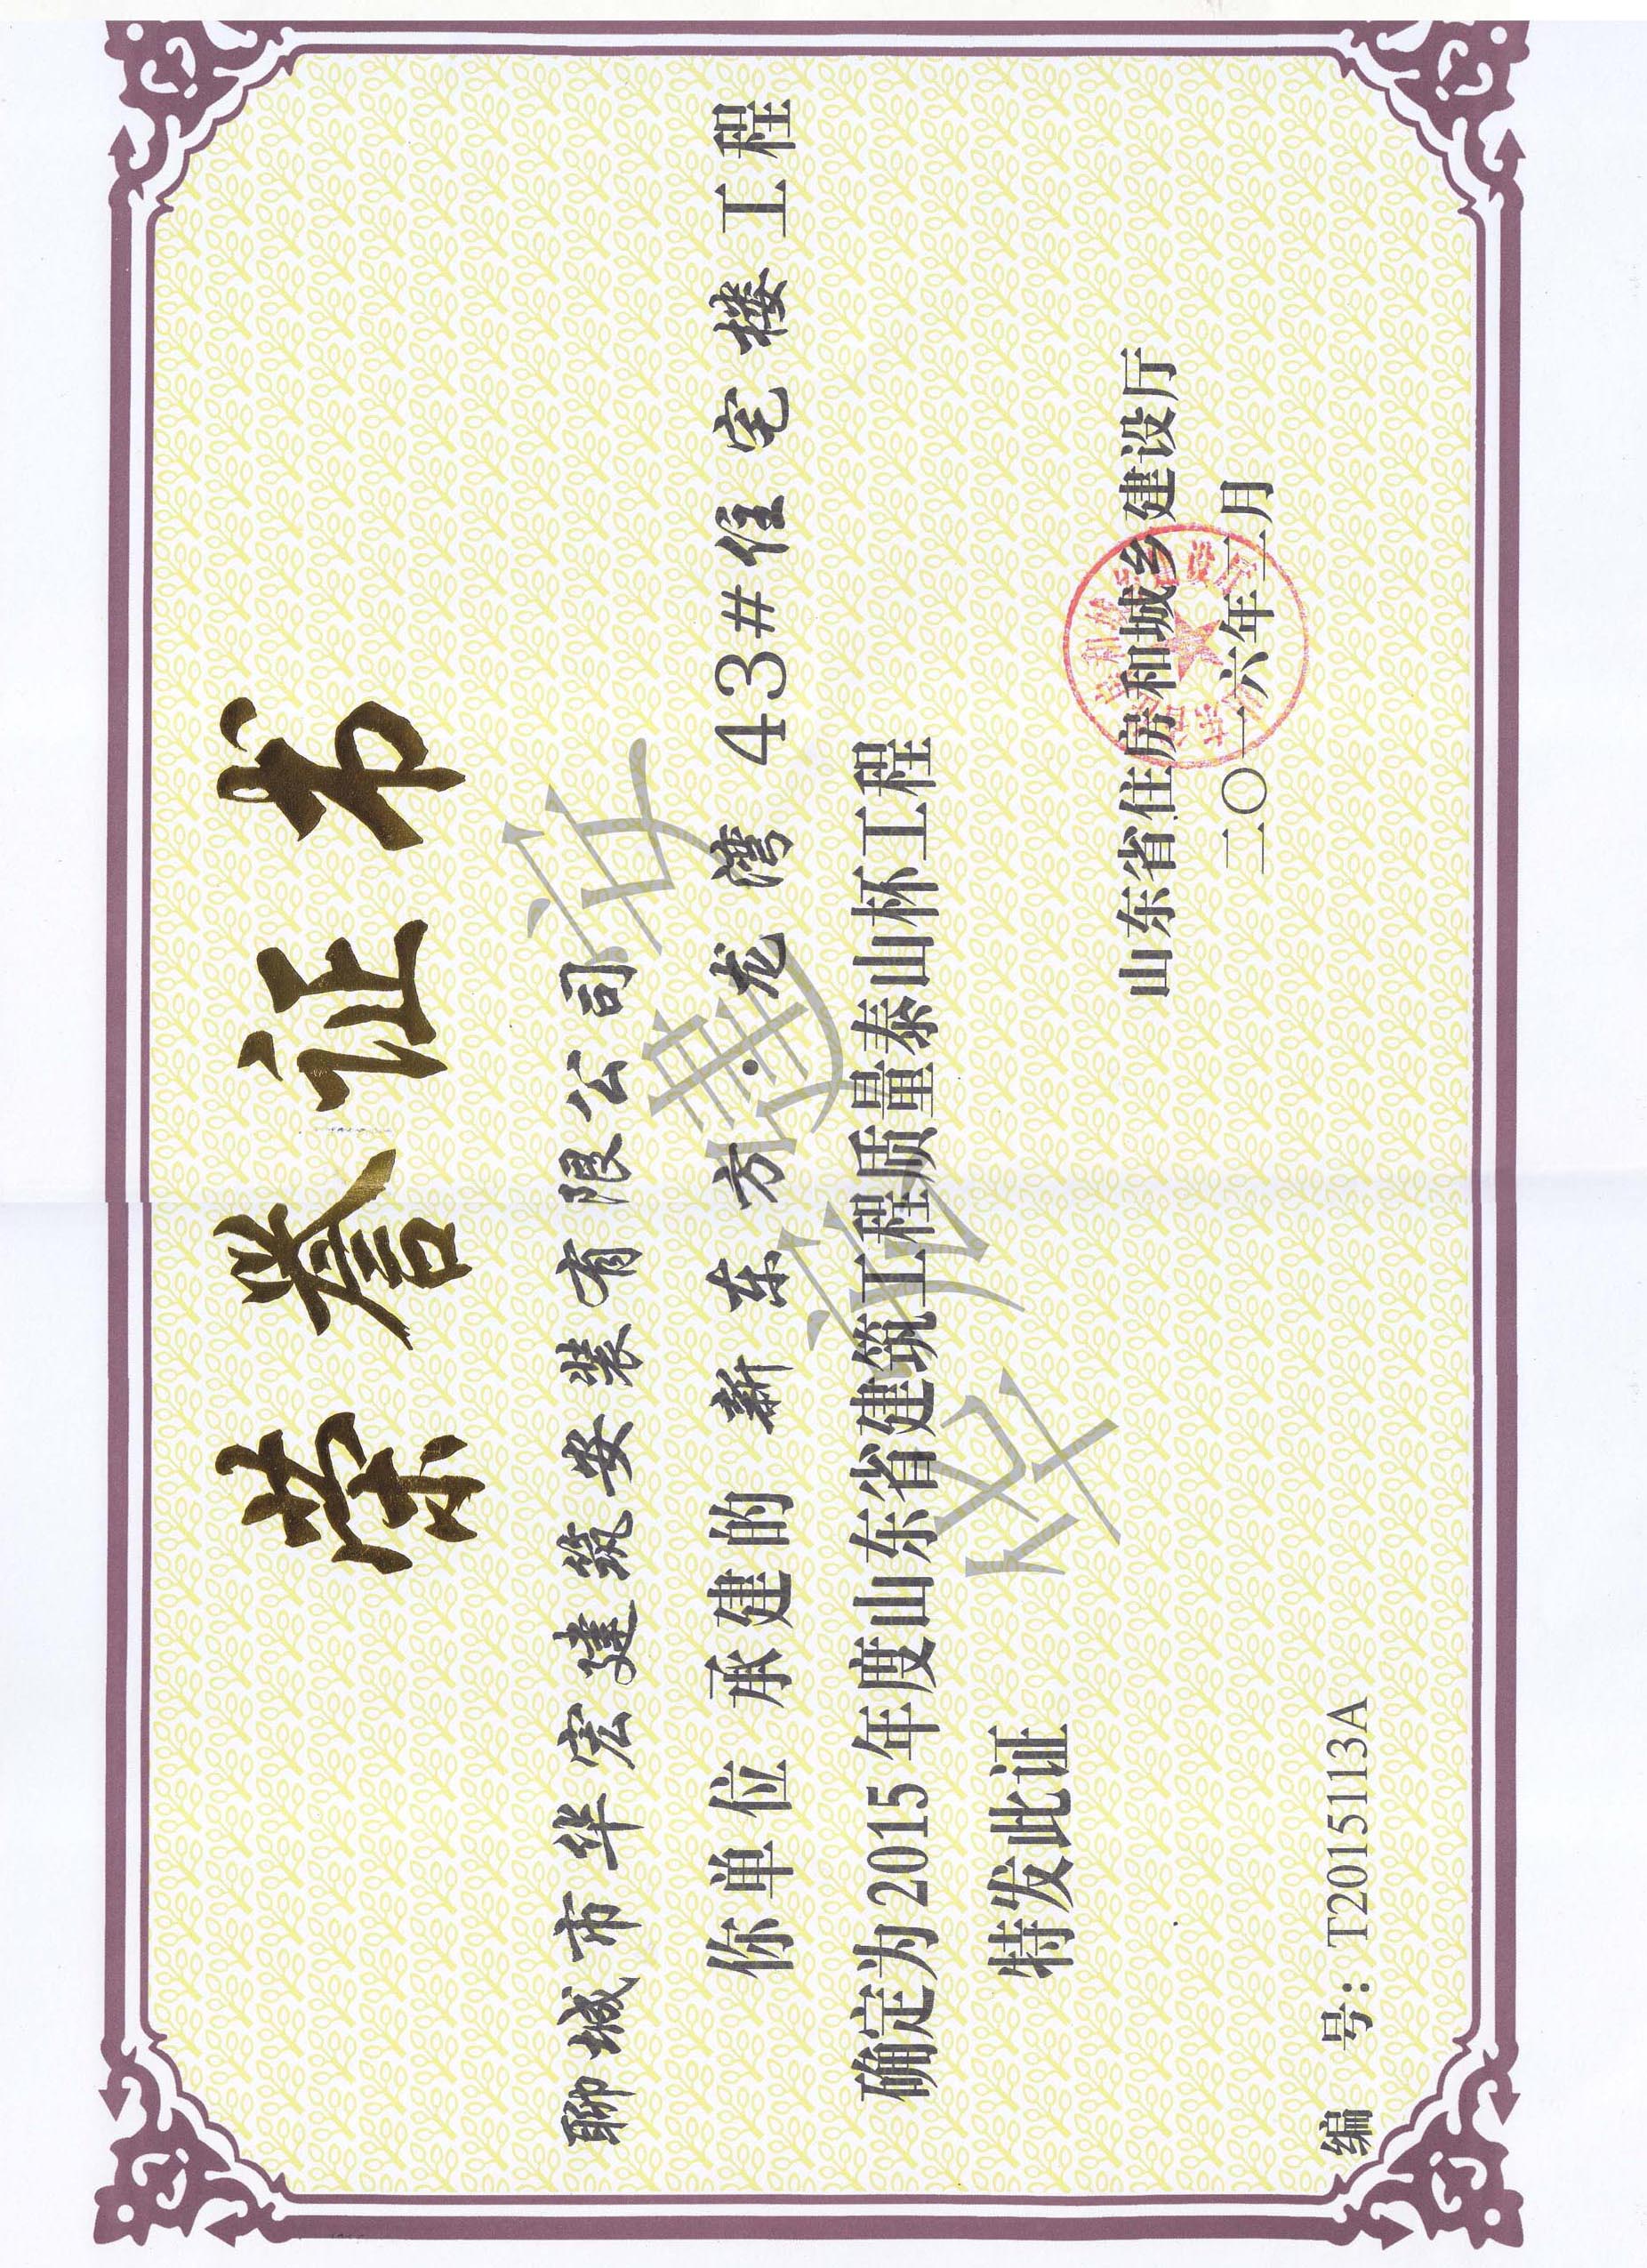 荣誉证书
聊城市华宏建筑安装有限公司
你单位承建的 新东方·龙湾43#住宅楼工程
确定为2015年度山东省建筑工程质量泰山杯工程
特发此证
山东省住房和城乡建设厅
二〇一六年三月
编 号：T2015113A
华宏建安